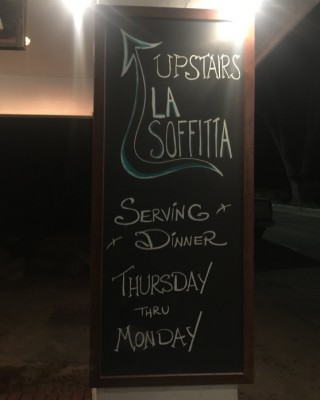 UPSTAIRS
LA
SOFFITTA
SERVING
DINNER
THURSDAY
THRU
MONDAY